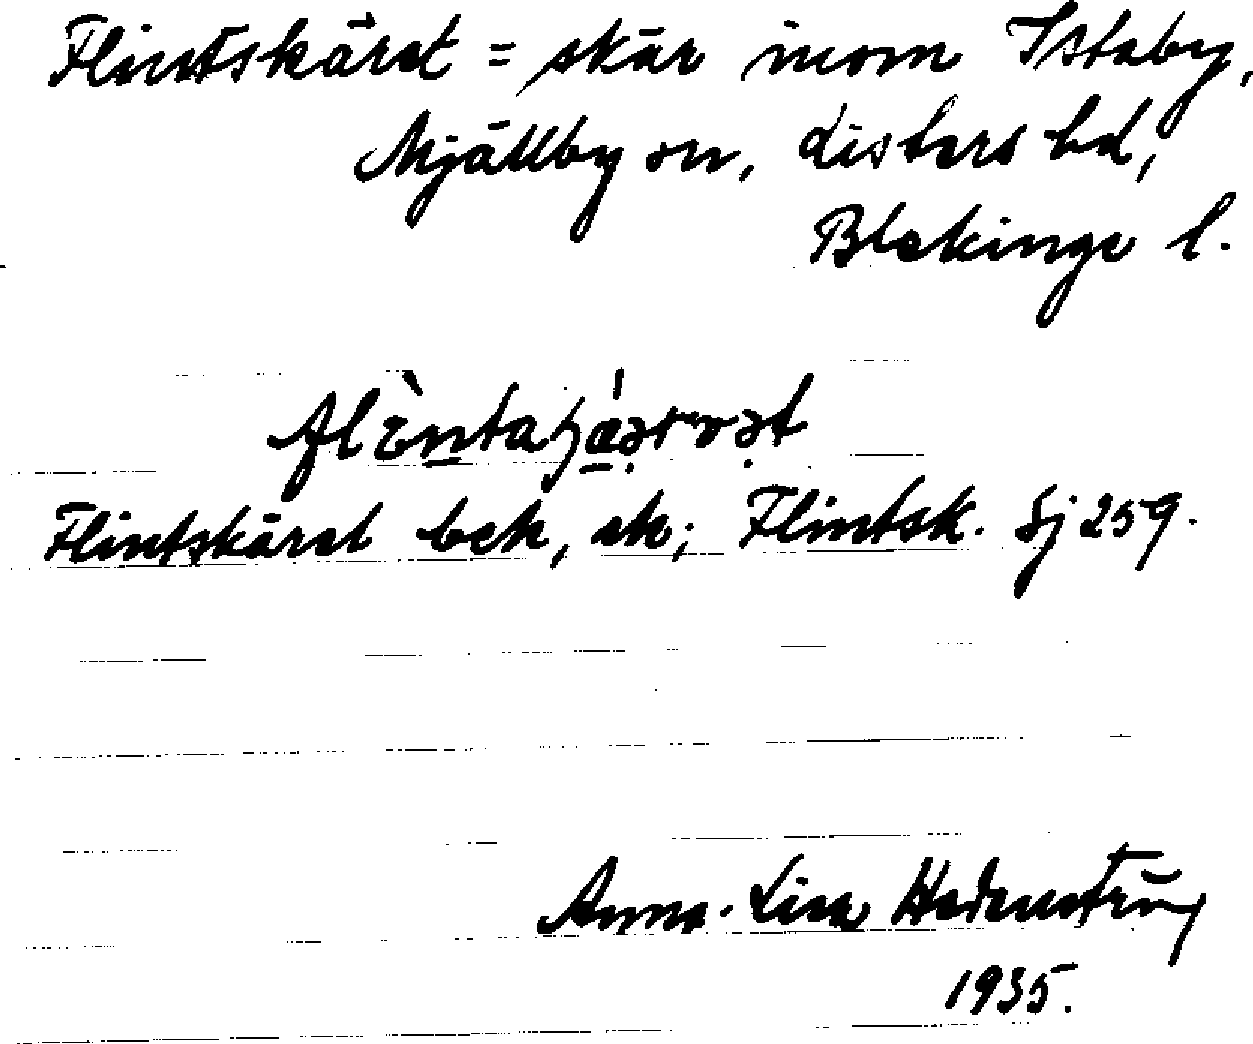 Flintskäret = skär inom Istaby,
Mjällby sn, Listers hd,
Blekinge l.
Flintskäret bek, ek; Flintsk. Sj 259.
Anna-Lisa
1935.